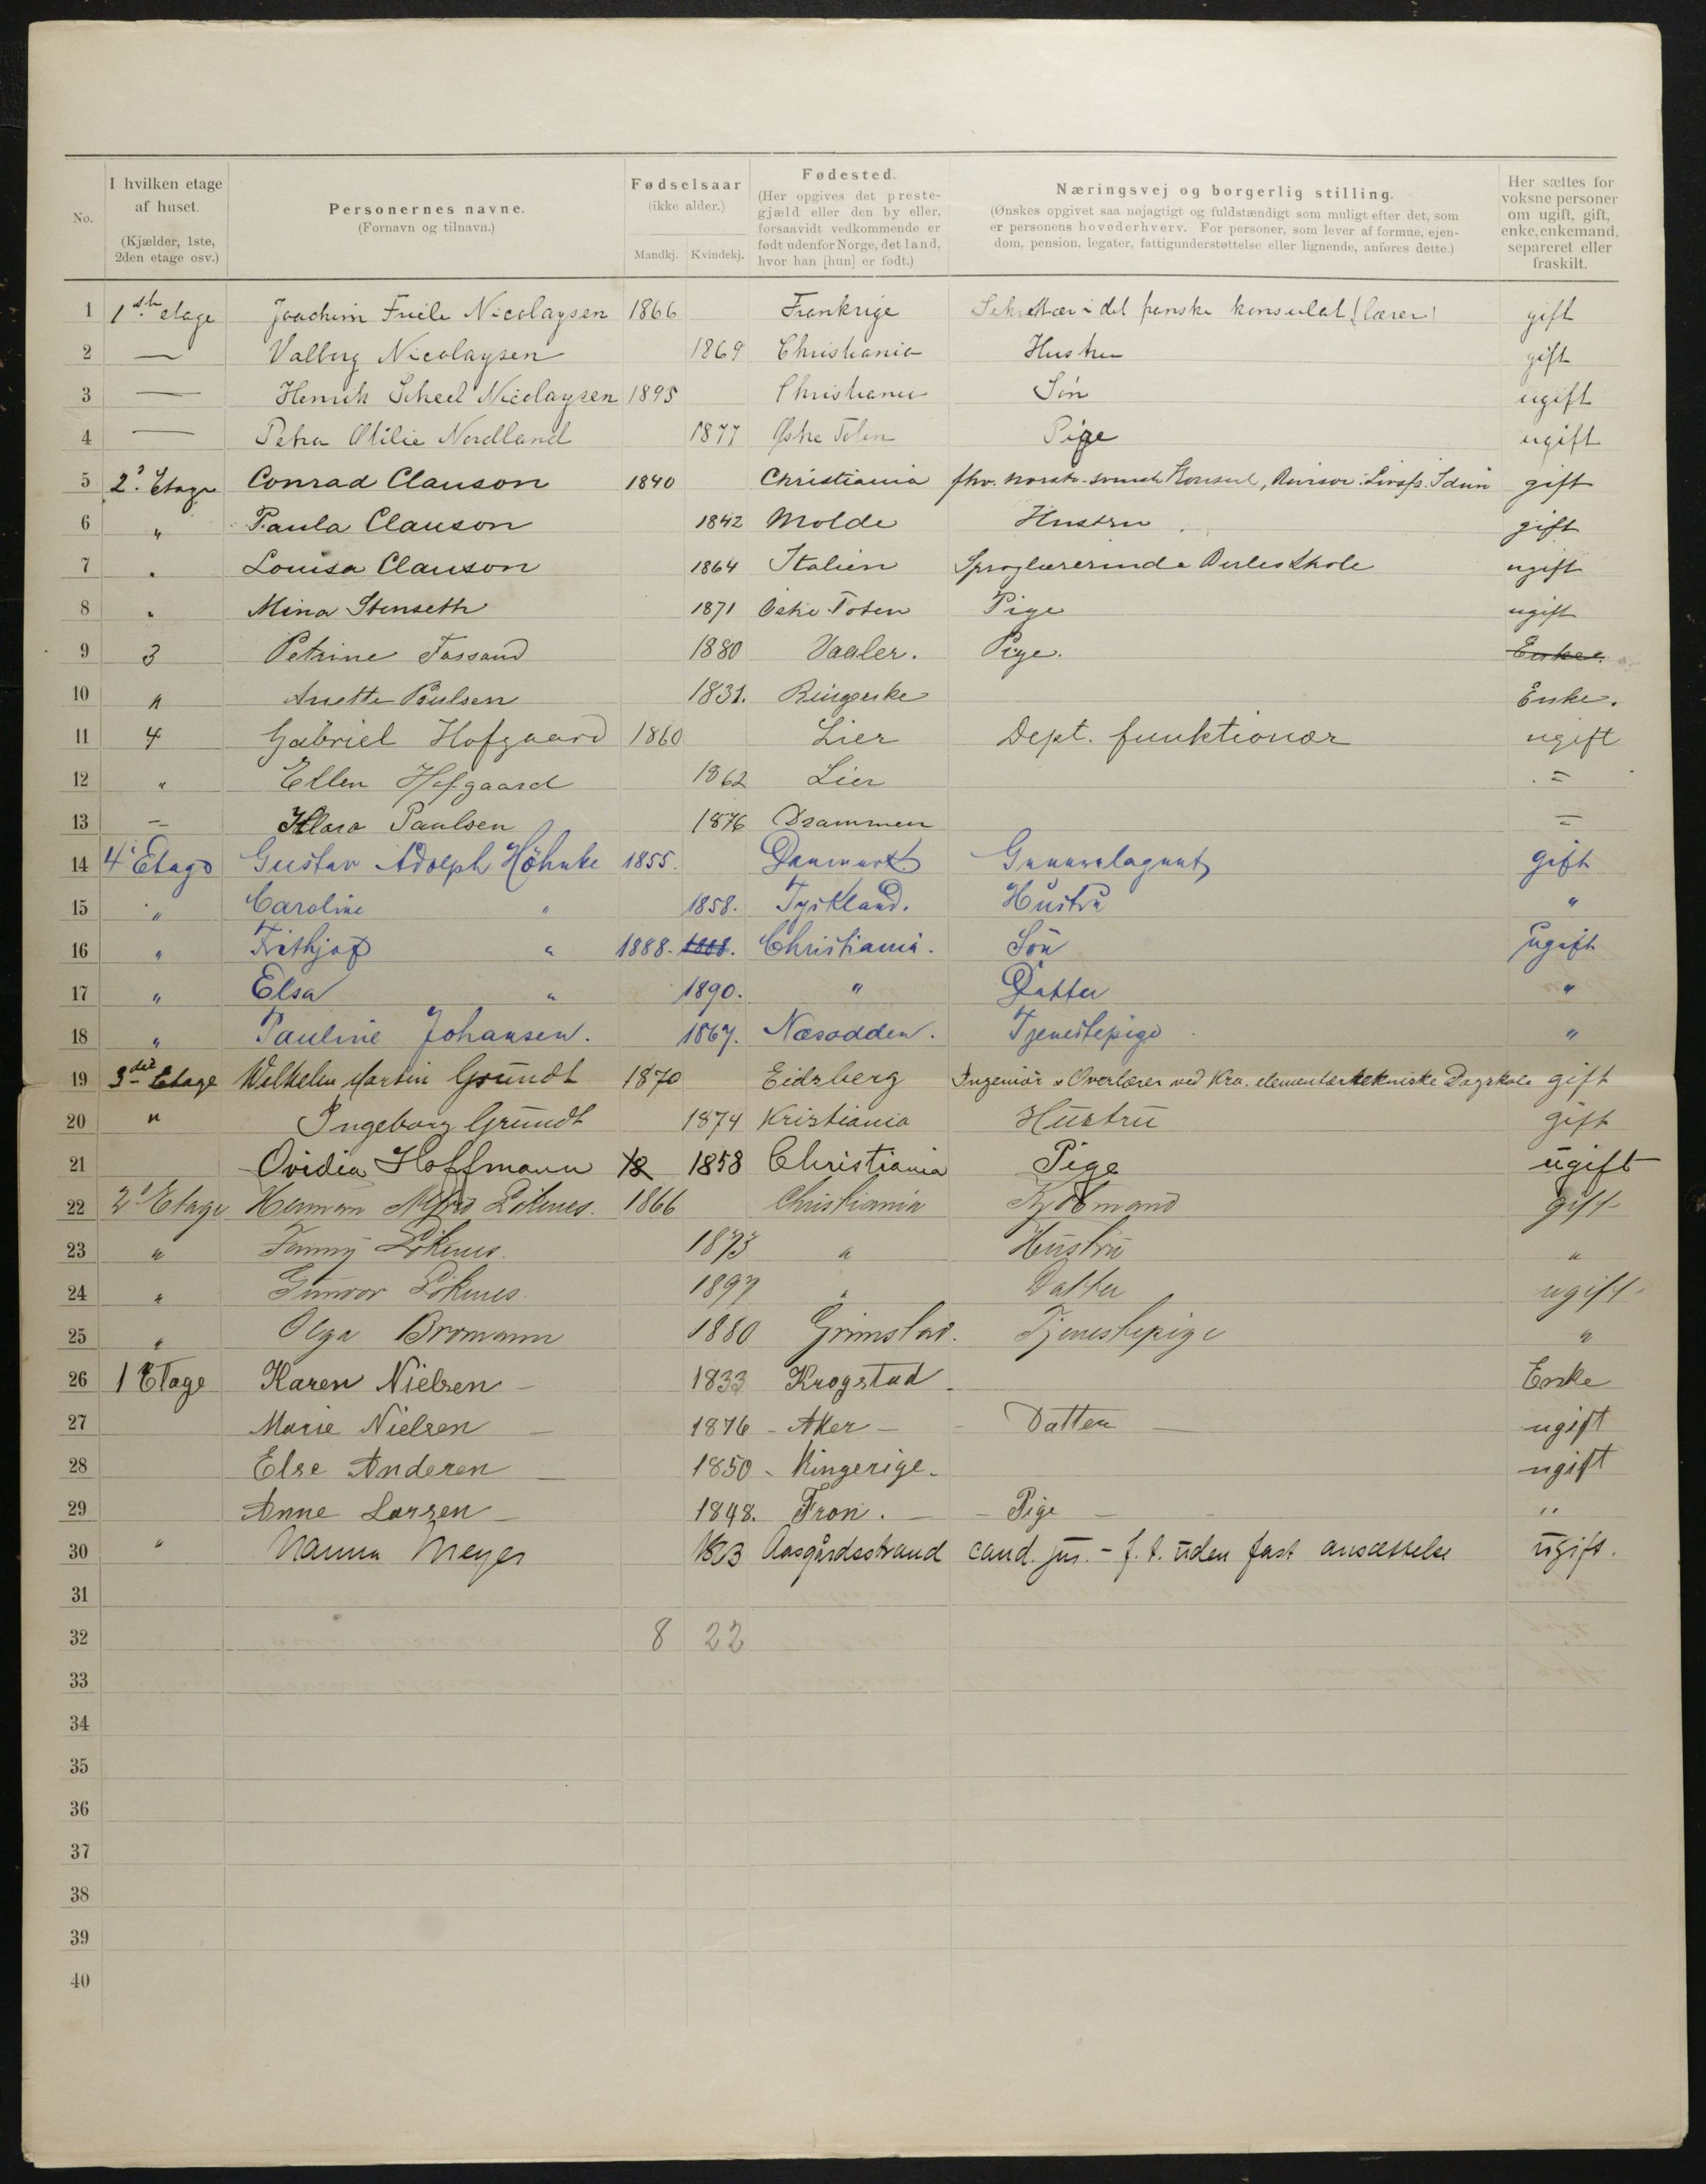 No.
I hvilken etage af huset. (Kjælder, 1ste, 2den etage osv.)
Personernes navne. (Fornavn og tilnavn.)
Fødselsaar (ikke alder.) Mandkj. Kvindekj.
Fødested. (Her opgives det prestegjæld eller den by eller, forsaavidt vedkommende er født udenfor Norge, det land, hvor han [hun] er født.)
Næringsvej og borgerlig stilling. (Ønskes opgivet saa nøjagtigt og fuldstændigt som muligt efter det, som er personens hovederhverv. For personer, som lever af formue, ejendom, pension, legater, fattigunderstøttelse eller lignende, anføres dette.)
Her sættes for voksne personer om ugift, gift, enke, enkemand, separeret eller fraskilt.
1 1ste etage Joachim Friele Nicolaysen 1866 Frankrige Sekretær i det franske konsulat (lærer) gift
2 — Valborg Nicolaysen 1869 Christiania Hustru gift
3 — Henrik Scheel Nicolaysen 1895 Christiania Søn ugift
4 — Petra Otilie Nordland 1877 Østre Toten Pige ugift
5 2. Etage Conrad Clauson 1840 Christiania fhv. norsk-svensk Konsul, Revisor i Livsfs. Idun gift
6 " Paula Clauson 1842 Molde Hustru gift
7 " Louisa Clauson 1864 Italien Sproglærerinde Berles Skole ugift
8 " Mina Stenseth 1871 Östre Toten Pige ugift
9 3 Petrine 1880 Vaaler. Pige. Enke.
10 " Anette Paulsen 1831. Ringerike Enke.
11 4 Gabriel Hofgaard 1860 Lier Dept. funktionær ugift
12 " Ellen Hofgaard 1862 Lier =
13 = Klara Paulsen 1876 Drammen =
14 4 Etage Gustav Adolph Höhnke 1855. Danmark Generalagent gift
15 " Caroline " 1858. Tyskland. Hustru "
16 " Frithjof " 1888. 1888. Christiania. Sön Ugift
17 " Elsa " 1890. " Datter "
18 " Pauline Johansen. 1867. Næsodden. Tjenestepige "
19 3die Etage Wilhelm Martin Grundt 1870 Eidsberg Ingeniör & Overlærer ved Kra. elementærtekniske Dagskole gift
20 " Ingeborg Grundt 1874 Kristiania Hustru gift
21 Ovidia Hoffmann 18 1858 Christiania Pige ugift
22 2. Etage Herman Alfred Lökenes. 1866 Christiania Kjöbmand gift
23 " Fanny Lökenes. 1873 " Hustru "
24 " Gunvor Lökenes. 1897 " Datter ugift
25 " Olga Bromann 1880 Grimstad. Tjenestepige "
26 1 Etage Karen Nielsen – 1833 Krogstad – Enke
27 Marie Nielsen – 1876 – Aker – – Datter – ugift
28 Else Anderen – 1850 – Ringerige. ugift
29 Anne Larsen – 1848. Fron. – – Pige – "
30 " Nanna Meyer 1823 Aasgårdsstrand cand. jur. – f. t. uden fast ansættelse ugift.
31
32 8 22
33
34
35
36
37
38
39
40